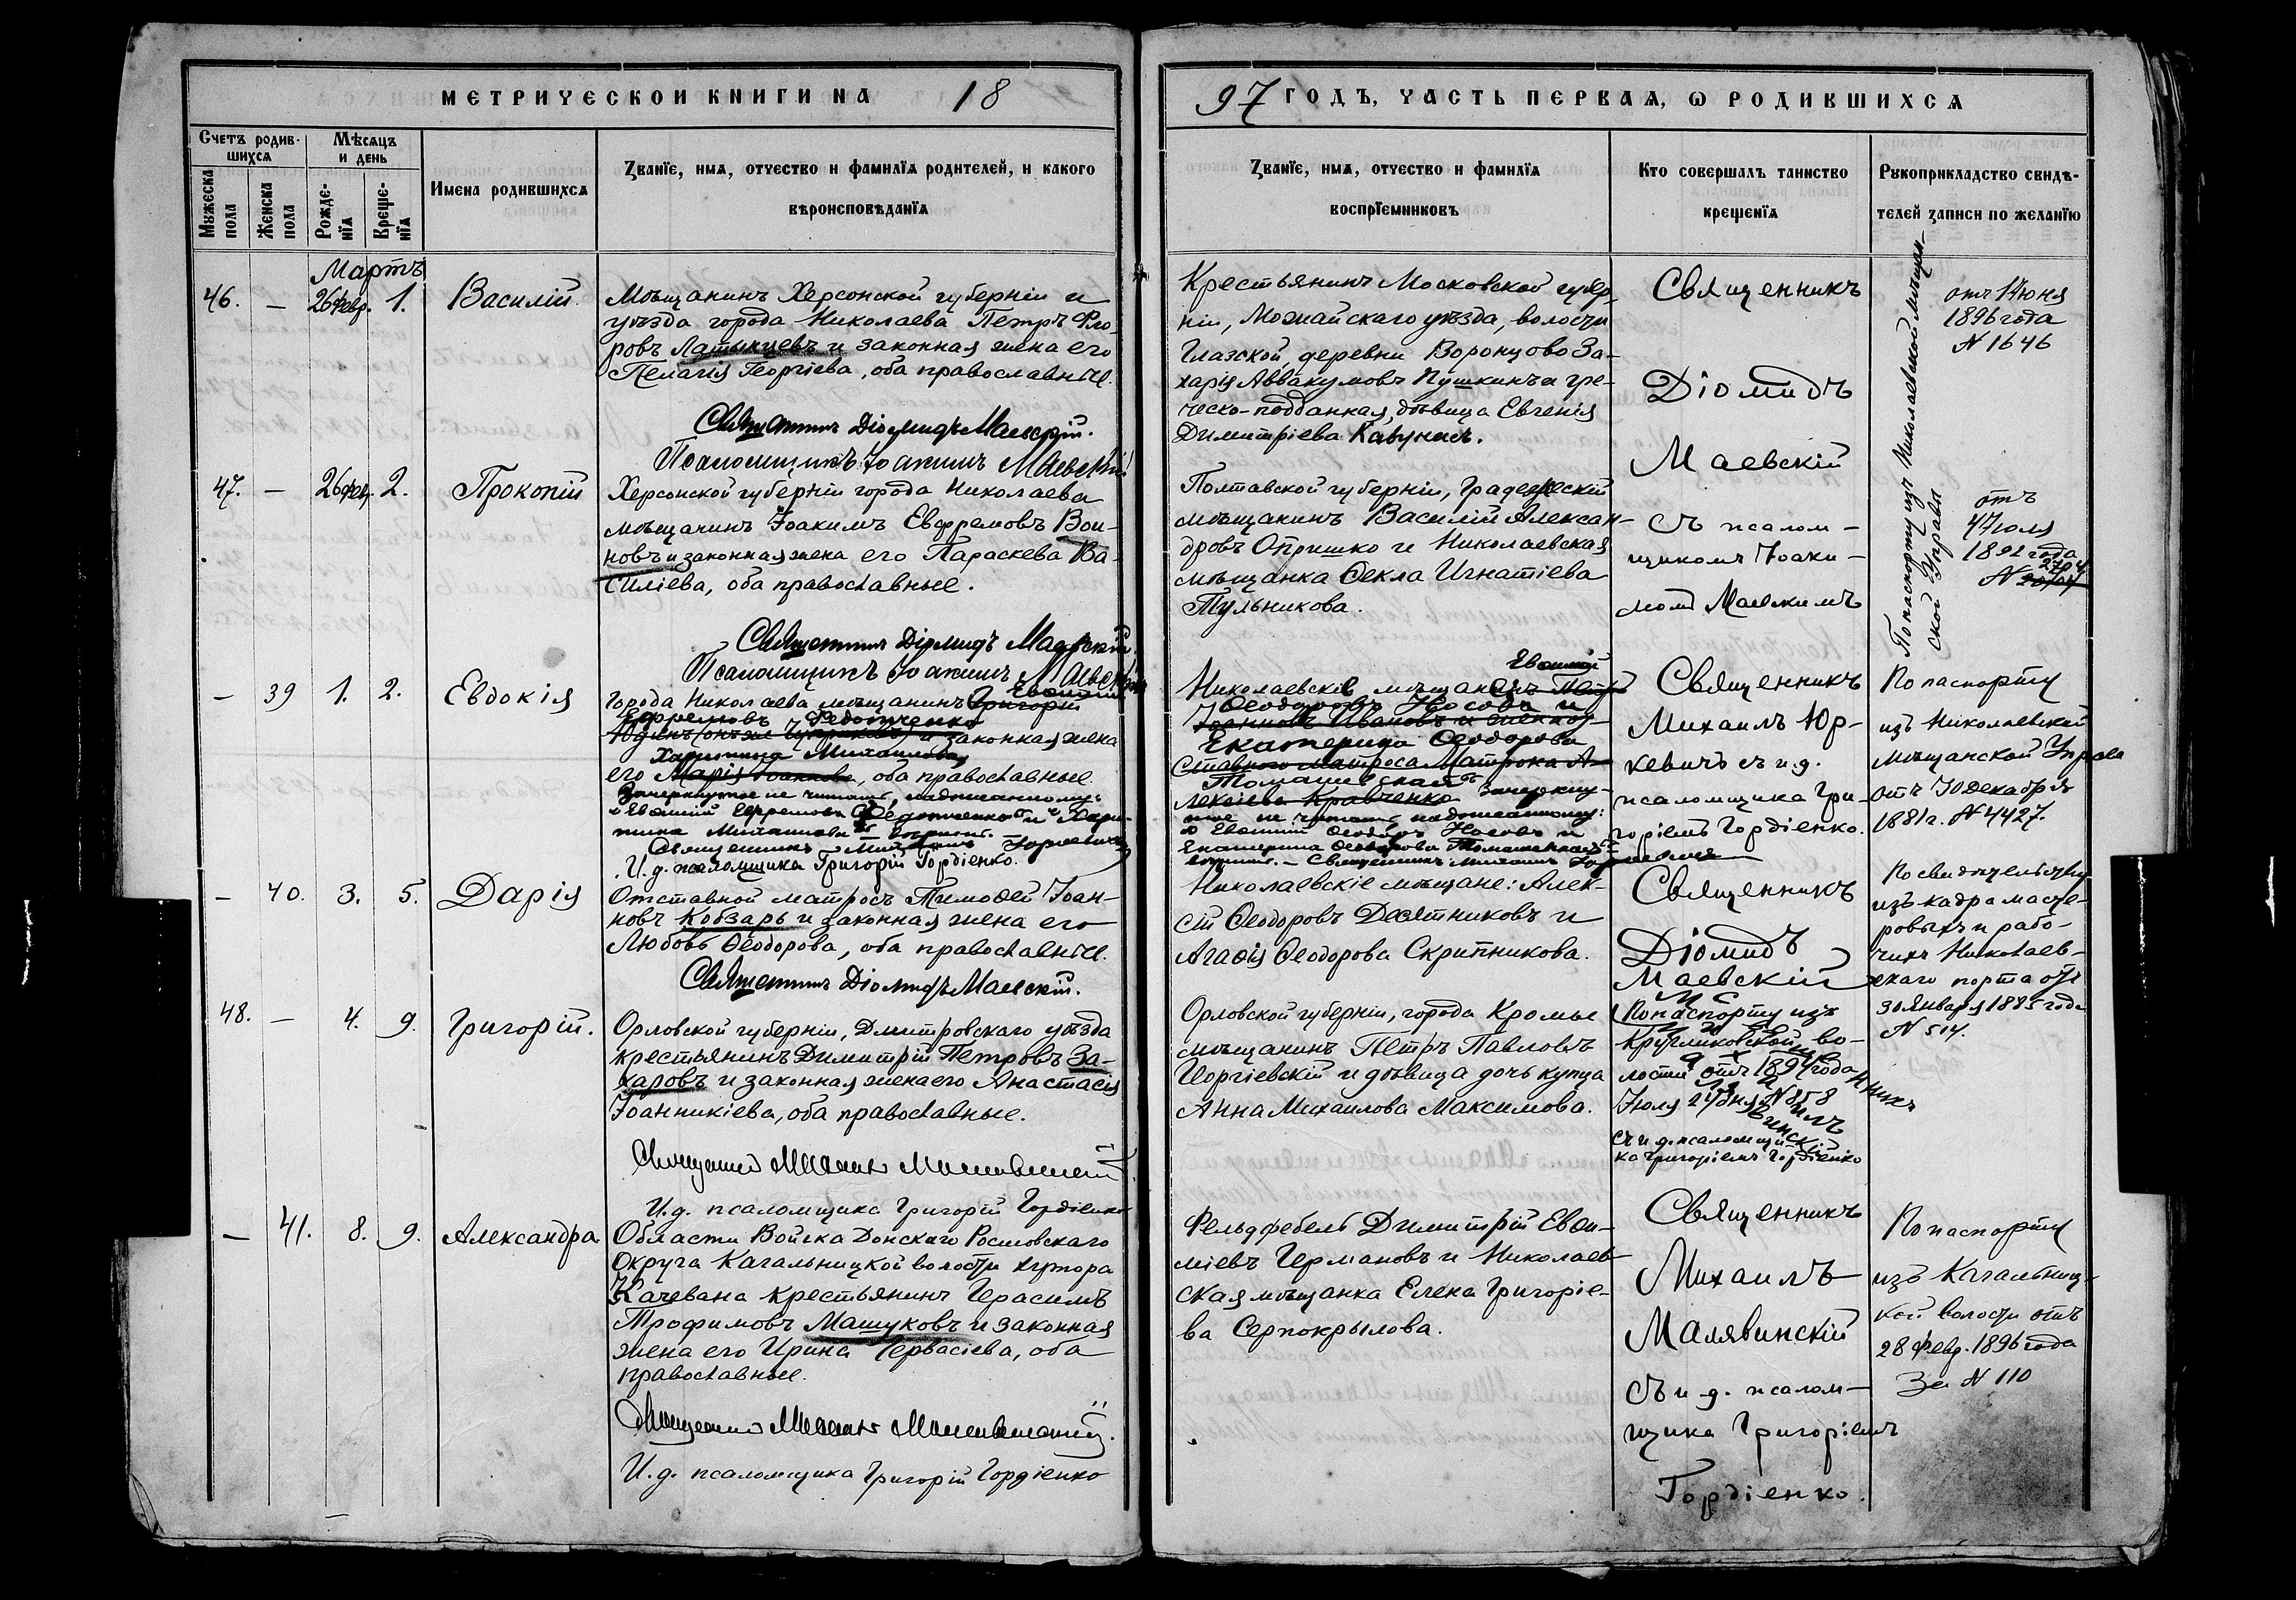 МЕТРИЧЕСКОИ КНИГИ НА 18
97 ГОДЪ, ЧАСТЬ ПЕРВАЯ, Ѡ РОДИВШИХСЯ
Счетъ родив-
шихся
Мѣсяцъ
и день
Мужеска
пола
Женска
пола
Рожде-
нїя
Креще-
нїя
Имена родившихся
Званїе, имя, отчество и фамилїя родителей, и какого
вѣроисповѣданїя
Званїе, имя, отчество и фамилїя
воспрїемниковъ
Кто совершалъ таинство
крещенїя
Рукоприкладство свидѣ-
телей записи по желанїю
Мартъ
46. — 26 февр. 1. Василій.
Мѣщанинъ Херсонской губерніи и
уѣзда города Николаева Петръ Фло-
ровъ Латынцевъ и законная жена его
Пелагія Георгіева, оба православные.
Священникъ Діомидъ Маевскій.
Псаломщикъ Іоакимъ Маевскій
Крестьянинъ Московской губер-
ніи, Можайскаго уѣзда, волости
Глазской, деревни Воронцово За-
харія Аввакумовъ Пушкинъ и гре-
ческо-подданная, дѣвица Евгенія
Димитріева
Священникъ
Діомидъ
Маевскій
съ псалом-
щикомъ Іоаки-
момъ Маевскимъ
По паспорту изъ Николаевской мѣщан-
ской Управы
отъ
1896 года
N 1646
47. — 26 фев. 2. Прокопій
Херсонской губерніи города Николаева
мѣщанинъ Іоакимъ Евфремовъ Вои-
новъ и законная жена его Параскева Ва-
силіева, оба православные.
Священникъ Діомидъ Маевскій.
Псаломщикъ Іоакимъ Маевскій
Полтавской губерніи,
мѣщанинъ Василій Алексан-
дровъ Опришко и Николаевская
мѣщанка Ѳекла Игнатіева
Тульникова.
отъ
4 Іюля
1892 года
2704
N
— 39 1. 2. Евдокія
Евѳимій
Города Николаева мѣщанинъ Григорій
Ефремовъ Федотченко
и законная жена
Харитина Михаилова
его Марія Іоаннова, оба православные.
Зачеркнутое не читать, надписанному:
„Евѳимій Ефремовъ Федотченко“ и „Хари-
тина Михаилова“
Священникъ Михаилъ Юркевичъ
И. д. псаломщика Григорій Гордіенко.
Евѳимій
Николаевскіе мѣщанинъ Петръ
Ѳеодоровъ Носовъ и
Іоанновъ Ивановъ и жена от-
Екатерина Ѳеодорова
ставного матроса Матрона А-
Томашевская
лексіева Кравченко. Зачеркну-
тое не читать надписанному:
„Евѳимій Ѳеодоровъ Носовъ и
Екатерина Ѳеодорова Томашевская“
Священникъ Михаилъ Юркевичъ
Священникъ
Михаилъ Юр-
кевичъ съ и. д.
псаломщика Гри-
горіемъ Гордіенко.
По паспорту
изъ Николаевской
мѣщанской Управы
отъ 10 Декабря
1881 г. N 4427.
— 40. 3. 5. Дарія
Отставной матросъ Тимоѳей Іоан-
новъ Кобзарь и законная жена его
Любовь Ѳеодорова, оба православные.
Священникъ Діомидъ Маевскій.
Николаевскіе мѣщане: Алек-
сій Ѳеодоровъ Десятниковъ и
Агаѳія Ѳеодорова Скрипникова.
Священникъ
Діомидъ
Маевскій
По свидѣтельству
изъ кадра масте-
ровыхъ и рабо-
чихъ Николаев-
скаго порта отъ
30 Января 1885 года
N 514.
48. — 4. 9. Григорій.
Орловской губерніи, Дмитровскаго уѣзда
крестьянинъ Димитрій Петровъ За-
харовъ и законная жена его Анастасія
Іоанникіева, оба православные.
Священникъ Михаилъ Малявинскій
И. д. псаломщика Григорій Гордіенко
Орловской губерніи, города Кромы
мѣщанинъ Петръ Павловъ
Георгіевскій и дѣвица дочь купца
Анна Михаилова Максимова.
По паспорту изъ
Кругликовской во-
лости отъ 1894 года
Іюля N 858
съ и. д. псаломщи-
ка Григоріемъ Гордіенко
— 41. 8. 9. Александра
Области Войска Донскаго Ростовскаго
округа Кагальницкой волости хутора
Качевана крестьянинъ Герасимъ
Трофимовъ Машуковъ и законная
жена его Ирина Гервасіева, оба
православные.
Священникъ Михаилъ Малявинскій.
И. д. псаломщика Григорій Гордіенко
Фельдфебель Димитрій Евѳи-
міевъ Германовъ и Николаев-
ская мѣщанка Елена Григоріе-
ва Серпокрылова.
Священникъ
Михаилъ
Малявинскій
съ и. д. псалом-
щика Григоріемъ
Гордіенко.
По паспорту
изъ Кагальниц-
кой волости отъ
28 Февр. 1896 года
За N 110